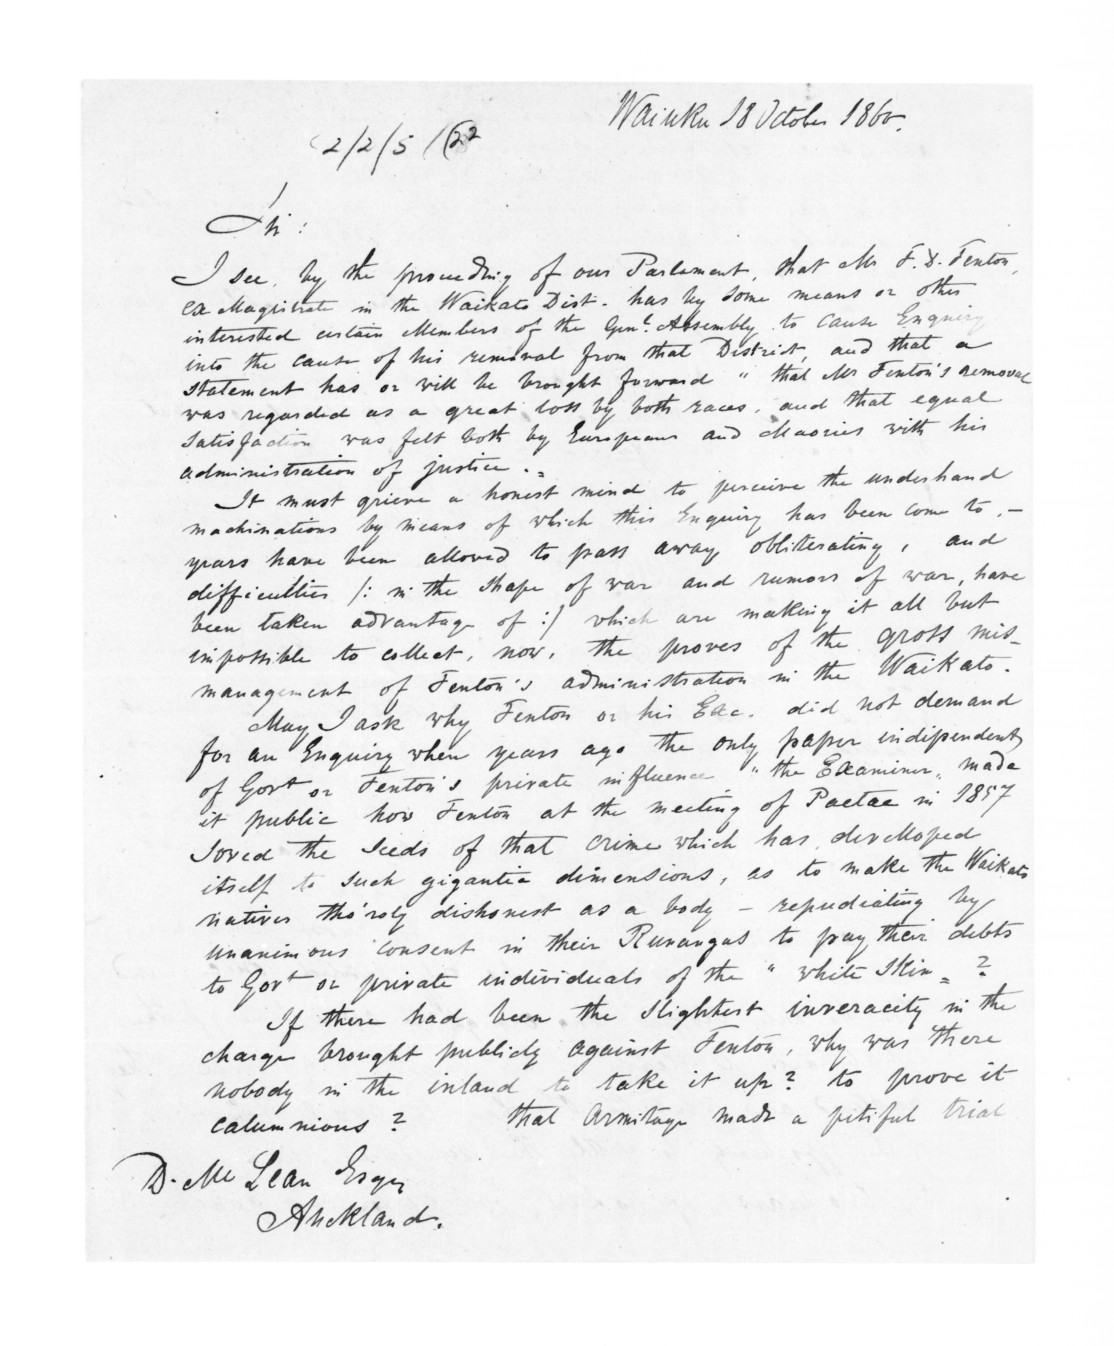 Waiuku 18 October 1860.
2/2/5
Sir:
I see, by the proceeding of our Parlament, that Mr F. D. Fenton,
ex Magistrate in the Waikato Dist. has by some means or other
interested certain Members of the Genl. Assembly to cause Enquiry
into the cause of his removal from that District, and that a
statement has or will be brought forward " that Mr Fenton's removal
was regarded as a great loss by both races, and that equal
satisfaction was felt both by Europeans and Maories with his
administration of justice. "
It must grieve a honest mind to perceive the underhand
machinations by means of which this Enquiry has been come to, —
years have been allowed to pass away obliterating, and
difficulties /: in the shape of war and rumors of war, have
been taken advantage of :/ which are making it all but
impossible to collect, now, the proves of the gross mis-
management of Fenton's administration in the Waikato.
May I ask why Fenton or his did not demand
for an Enquiry when years ago the only paper indipendent
of Govt or Fenton's private influence " the Examiner " made
it public how Fenton at the meeting of Paetae in 1857
soved the seeds of that crime which has developed
itself to such gigantic dimensions, as to make the Waikato
natives tho'roly dishonest as a body — repudiating by
unanimous consent in their Runangas to pay their debts
to Govt or private individuals of the " white Skin " ?
If there had been the slightest inveracity in the
charge brought publicly against Fenton, why was there
nobody in the inland to take it up? to prove it
calumnious ? that Armitage made a pitiful trial
D. Mc Lean Esqr
Auckland.